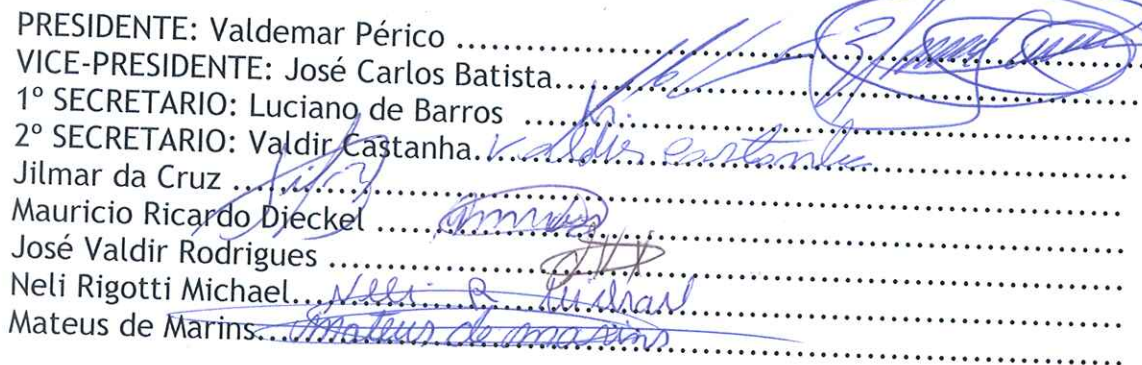 PRESIDENTE: Valdemar Périco ........................
VICE-PRESIDENTE: José Carlos Batista........................
1º SECRETARIO: Luciano de Barros ........................
2º SECRETARIO: Valdir Castanha. Valdir Castanha
Jilmar da Cruz ........................
Mauricio Ricardo Dieckel ........................
José Valdir Rodrigues ........................
Neli Rigotti Michael... Neli R Michael
Mateus de Marins... Mateus de Marins